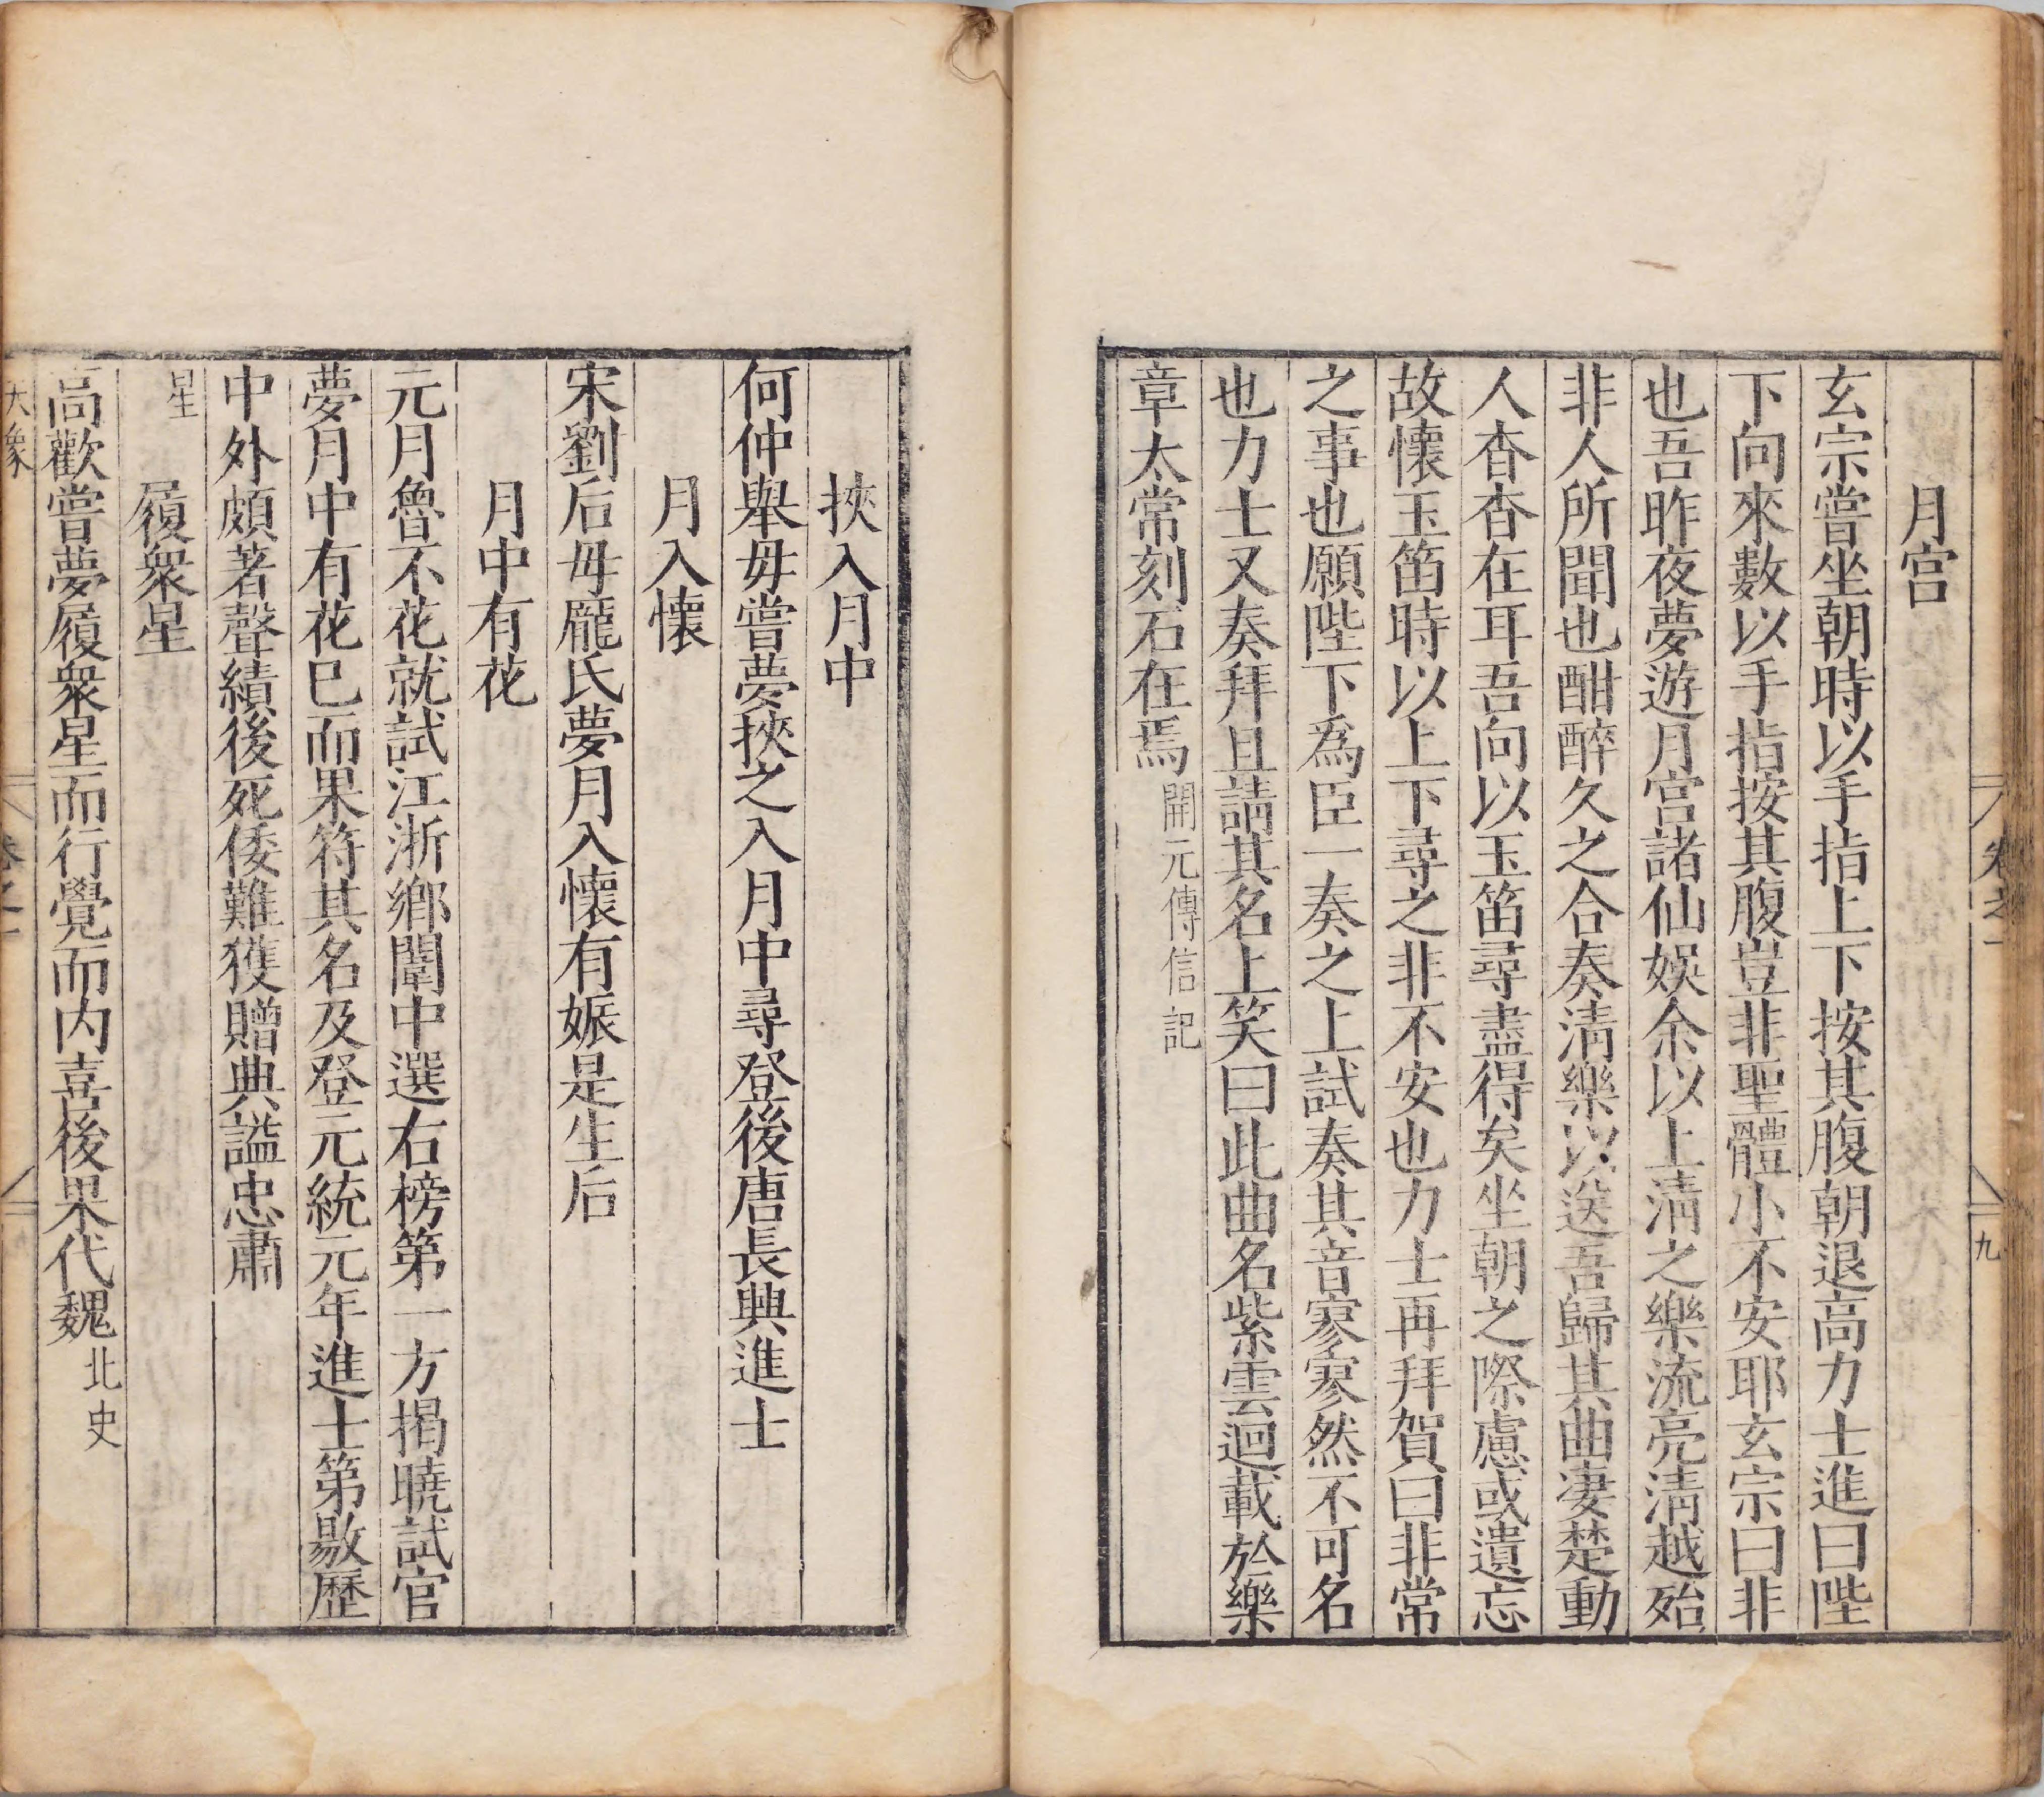 月宫
玄宗嘗坐朝時以手指上下按其腹朝退高力士進曰陛
下向來數以手指按其腹豈非聖體小不安耶玄宗曰非
也吾昨夜夢遊月宫諸仙娛余以上清之樂流亮清越殆
非人所聞也酣醉久之合奏清樂以送吾歸其曲凄楚動
人杳杳在耳吾向以玉笛尋盡得矣坐朝之際慮或遺忘
故懷玉笛時以上下尋之非不安也力士再拜賀曰非常
之事也願陛下爲臣一奏之上試奏其音寥寥然不可名
也力士又奏拜且請其名上笑曰此曲名紫雲迴載於樂
章太常刻石在焉開元傳信記
卷之一
九
挾入月中
何仲舉毋嘗夢挾之入月中尋登後唐長興進士
月入懷
宋劉后毋龎氏夢月入懷有娠是生后
月中有花
元月魯不花就試江浙鄉闈中選右榜第一方揭曉試官
夢月中有花巳而果符其名及登元統元年進士第敭歷
中外頗著聲績後死倭難獲贈典謚忠肅
星
履衆星
高歡嘗夢履衆星而行覺而内喜後果代魏北史